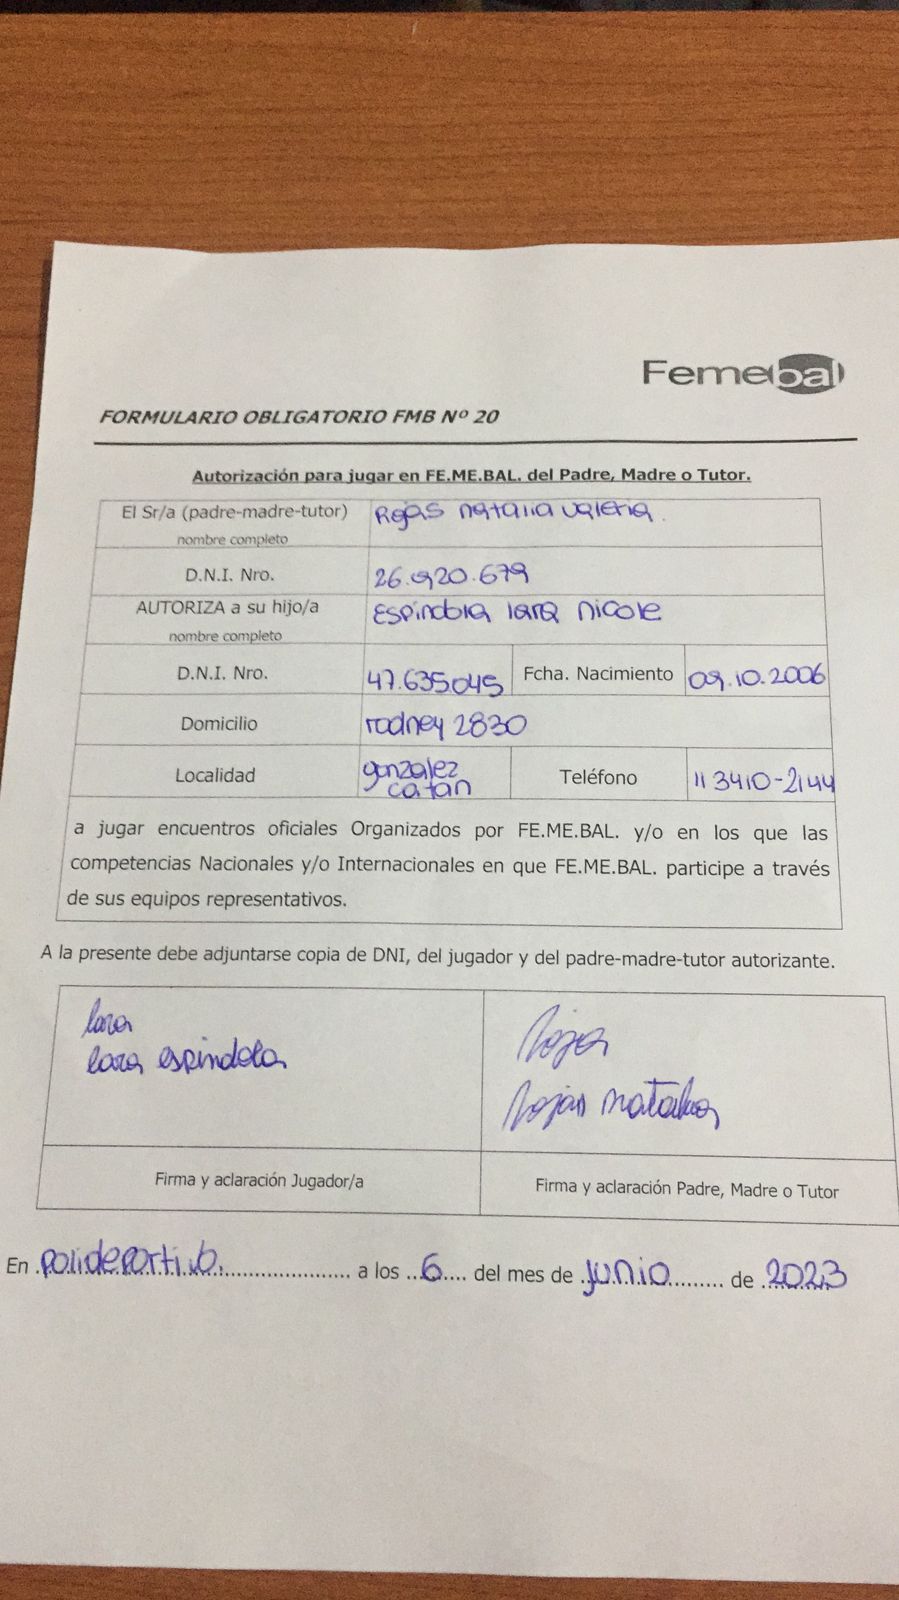 Femebal
FORMULARIO OBLIGATORIO FMB Nº 20
Autorización para jugar en FE.ME.BAL. del Padre, Madre o Tutor.
El Sr/a (padre-madre-tutor) Rojas natalia valeria.
nombre completo
D.N.I. Nro. 26.920.679
AUTORIZA a su hijo/a Espindola lara nicole
nombre completo
D.N.I. Nro. 47.635.045 Fcha. Nacimiento 09.10.2006
Domicilio rodney 2830
Localidad gonzalez catan Teléfono 11 3410-2144
a jugar encuentros oficiales Organizados por FE.ME.BAL. y/o en los que las
competencias Nacionales y/o Internacionales en que FE.ME.BAL. participe a través
de sus equipos representativos.
A la presente debe adjuntarse copia de DNI, del jugador y del padre-madre-tutor autorizante.
lara Rojas
lara espindola Rojas natalia
Firma y aclaración Jugador/a Firma y aclaración Padre, Madre o Tutor
En polideportivo a los 6 del mes de junio de 2023